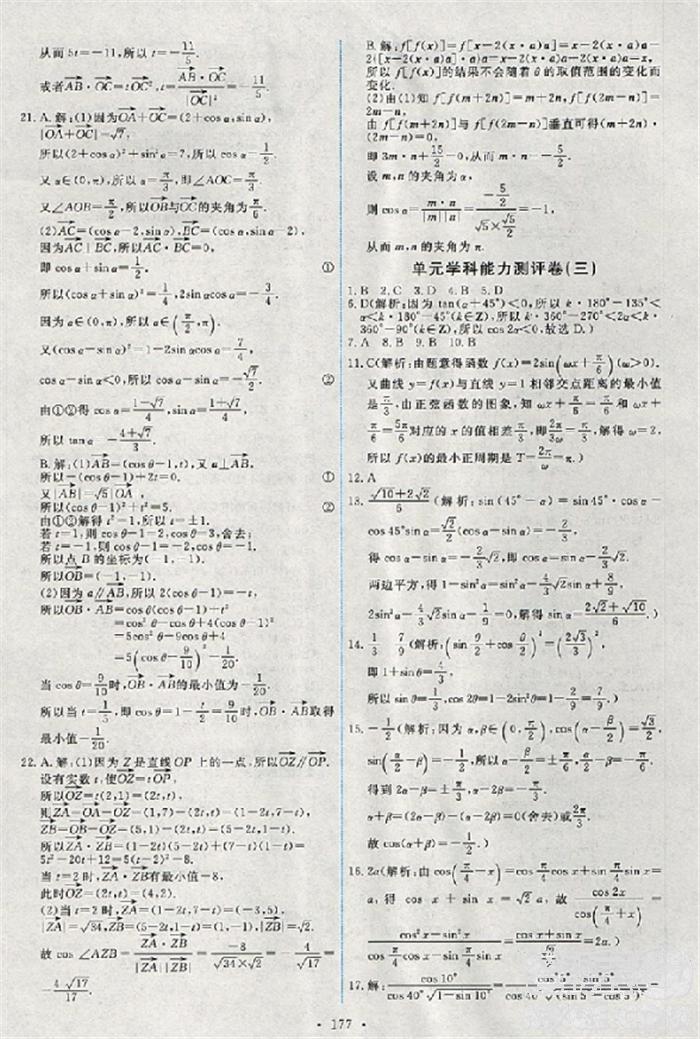 从而 5t=-11,所以 t=-11/5.
或者→AB·→OC=t→OC²,t=→AB·→OC/|→OC|²=-11/5.
21.A.解:(1)因为→OA+→OC=(2+cos α,sin α),
|→OA+→OC|=√7,
所以(2+cos α)²+sin²α=7,所以 cos α=1/2.
又 α∈(0,π),所以 α=π/3,即∠AOC=π/3.
又∠AOB=π/2,所以→OB与→OC的夹角为π/6.
(2)→AC=(cos α-2,sin α),→BC=(cos α,sin α-2),
因为→AC⊥→BC,所以→AC·→BC=0,
即 cos α+sin α=1/2, ①
所以(cos α+sin α)²=1/4,所以 2sin αcos α=-3/4.
因为 α∈(0,π),所以 α∈(π/2,π),
又(cos α-sin α)²=1-2sin αcos α=7/4,
cos α-sin α<0,所以 cos α-sin α=-√7/2, ②
由①②得 cos α=(1-√7)/4,sin α=(1+√7)/4,
所以 tan α=-(4+√7)/3.
B.解:(1)→AB=(cos θ-1,t),又 a⊥→AB,
所以-(cos θ-1)+2t=0. ①
又|→AB|=√5|→OA|,
所以(cos θ-1)²+t²=5. ②
由①②解得 t²=1,所以 t=±1.
若 t=1,则 cos θ-1=2,cos θ=3,舍去;
若 t=-1,则 cos θ-1=-2,cos θ=-1.
所以点 B 的坐标为(-1,-1).
所以→OB=(-1,-1).
(2)因为 a∥→AB,所以 2(cos θ-1)=-t,
所以→OB·→AB=cos θ(cos θ-1)+t²
=cos²θ-cos θ+4(cos θ-1)²
=5cos²θ-9cos θ+4
=5(cos θ-9/10)²-1/20.
当 cos θ=9/10时,→OB·→AB的最小值为-1/20.
所以当 t=1/5,即 cos θ=1-t/2=9/10时,→OB·→AB取得
最小值-1/20.
22.A.解:(1)因为 Z 是直线 OP 上的一点,所以→OZ∥→OP.
设有实数 t,使→OZ=t→OP,
所以→OZ=t(2,1)=(2t,t),
则→ZA=→OA-→OZ=(1,7)-(2t,t)=(1-2t,7-t),
→ZB=→OB-→OZ=(5,1)-(2t,t)=(5-2t,1-t).
所以→ZA·→ZB=(1-2t)(5-2t)+(7-t)(1-t)=
5t²-20t+12=5(t-2)²-8.
当 t=2 时,→ZA·→ZB有最小值-8,
此时→OZ=(2t,t)=(4,2).
(2)当 t=2 时,→ZA=(1-2t,7-t)=(-3,5),
|→ZA|=√34,→ZB=(5-2t,1-t)=(1,-1),|→ZB|=√2.
故 cos ∠AZB=→ZA·→ZB/(|→ZA||→ZB|)=-8/(√34×√2)=
-4√17/17.
B.解:f[f(x)]=f[x-2(x·a)a]=x-2(x·a)a-
2{[x-2(x·a)a]·a}a=x-2(x·a)a+2(x·a)a=x,
所以 f[f(x)]的结果不会随着 θ 的取值范围的变化而
变化.
(2)由(1)知 f[f(m+2n)]=m+2n,f[f(2m-n)]=
2m-n,
由 f[f(m+2n)]与 f[f(2m-n)]垂直可得(m+2n)·
(2m-n)=0,
即 3m·n+15/2=0,从而 m·n=-5/2.
设 m,n 的夹角为 α,
则 cos α=m·n/(|m||n|)=(-5/2)/(√5×√5/2)=-1,
从而 m,n 的夹角为 π.
单元学科能力测评卷(三)
1.B 2.C 3.D 4.B 5.D
6.D(解析:因为 tan(α+45°)<0,所以 k·180°-135°
<α<k·180°-45°(k∈Z),所以 k·360°-270°<2α<k·
360°-90°(k∈Z),所以 cos 2α<0,故选 D.)
7.A 8.B 9.B 10.B
11.C(解析:由题意得函数 f(x)=2sin(ωx+π/6)(ω>0),
又曲线 y=f(x)与直线 y=1 相邻交点距离的最小值
是π/3,由正弦函数的图象,知 ωx+π/6=π/6和 ωx+
π/6=5π/6对应的 x 的值相差π/3,即2π/3ω=π/3,解得 ω=2,
所以 f(x)的最小正周期是 T=2π/ω=π.)
12.A
13.(√10+2√2)/6(解析:sin(45°-α)=sin 45°·cos α-
cos 45°sin α=√2/2(cos α-sin α)=-2/3,
得 cos α-sin α=-2/3√2,即 cos α=sin α-2/3√2.
两边平方,得 1-sin²α=sin²α-4/3√2sin α+8/9,
2sin²α-4/3√2sin α-1/9=0,解得 sin α=(2√2+√10)/6.)
14.1/3 7/9(解析:(sin θ/2+cos θ/2)²=(2√3/3)²,
即 1+sin θ=4/3,
所以 sin θ=1/3,cos 2θ=1-2sin²θ=1-2/9=7/9.)
15.-1/2(解析:因为 α,β∈(0,π/2),cos(α-β/2)=√3/2,
sin(α/2-β)=-1/2,所以 α-β/2=±π/6,α/2-β=-π/6.
得到 2α-β=±π/3,α-2β=-π/3,
α+β=(2α-β)-(α-2β)=0(舍去)或2π/3.
故 cos(α+β)=-1/2.)
16.2a(解析:由 cos(π/4-x)=cos π/4cos x+sin π/4sin x=
a,得 cos x+sin x=√2 a,故 cos 2x/cos(π/4+x)=
(cos²x-sin²x)/(cos π/4cos x-sin π/4sin x)=2a.)
17.解:cos 10°/(cos 40°√(1-sin 10°))=(cos²5°-sin²5°)/(cos 40°(cos 5°-sin 5°))=
~ 177 ~